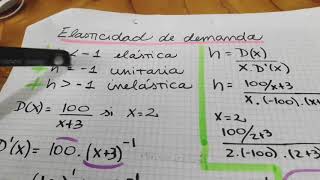 Elasticidad de demanda
< -1 elástica
h = -1 unitaria
h > -1 inelástica
D(x) = 100/x+3 si x=2
D'(x) = 100.(x+3)^-1
h = D(x)/x.D'(x)
h = 100/x+3
x.(-100).(x
x=2
100/2+3
2.(-100).(2+3)